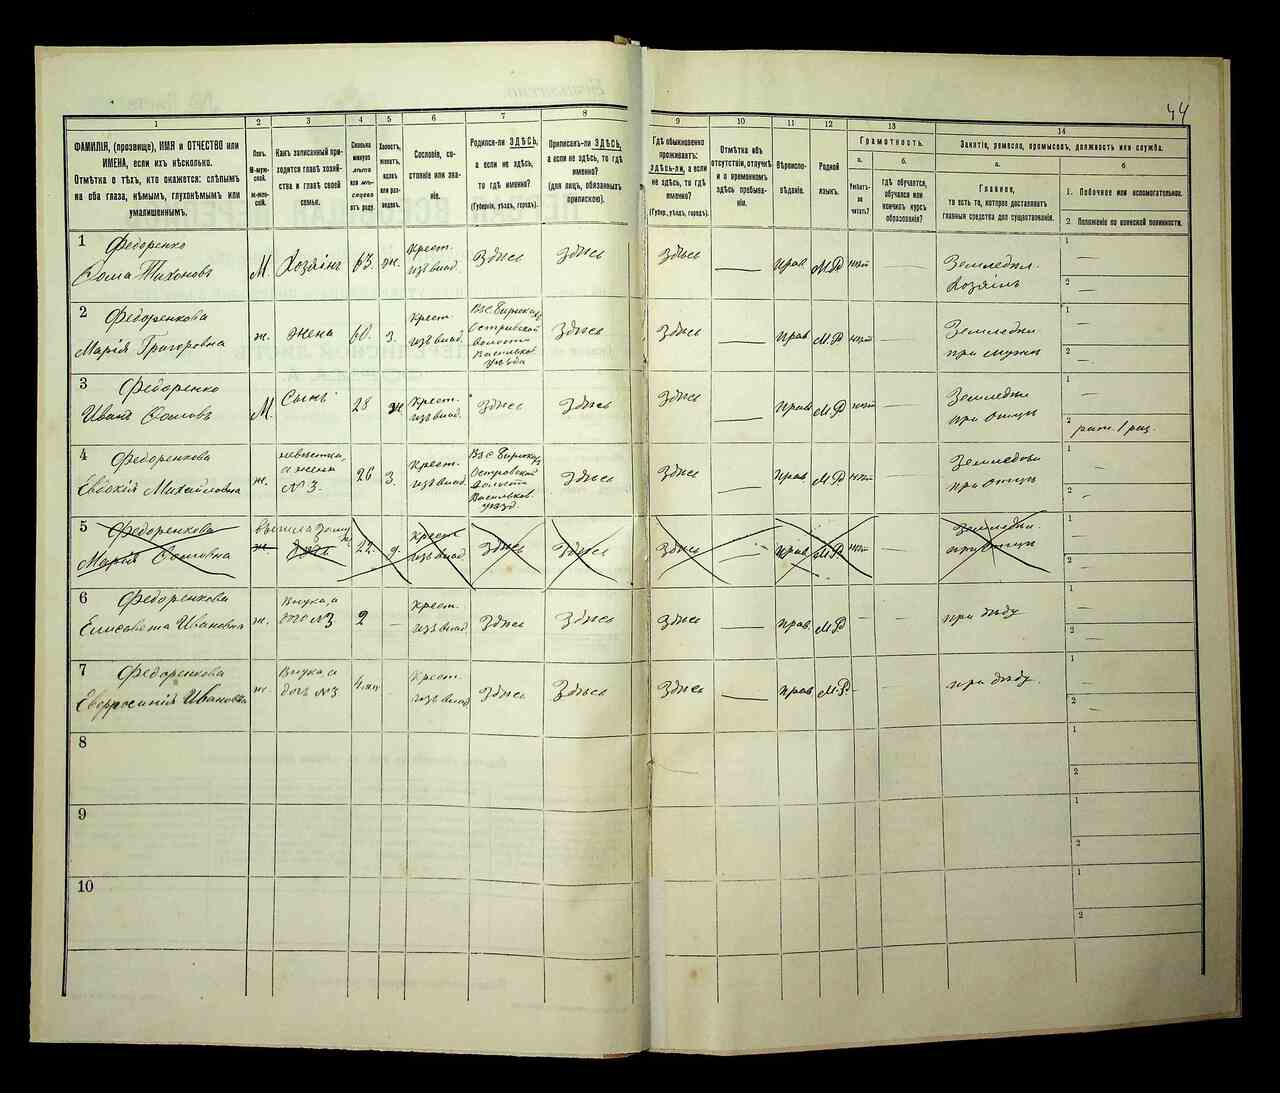 44
1
2
3
4
5
6
7
8
9
10
11
12
13
14
ФАМИЛІЯ, (прозвище), ИМЯ и ОТЧЕСТВО или
ИМЕНА, если ихъ нѣсколько.
Отмѣтка о тѣхъ, кто окажется: слѣпымъ
на оба глаза, нѣмымъ, глухонѣмымъ или
умалишеннымъ.
Полъ.
М-муж-
ской.
Ж-жен-
скій.
Какъ записанный при-
ходится главѣ хозяй-
ства и главѣ своей
семьи.
Сколько
минуло
лѣтъ
или мѣ-
сяцевъ
отъ роду.
Холостъ,
женатъ,
вдовъ
или раз-
веденъ.
Сословіе, со-
стояніе или зва-
ніе.
Родился-ли ЗДѢСЬ,
а если не здѣсь,
то гдѣ именно?
(Губернія, уѣздъ, городъ).
Приписанъ-ли ЗДѢСЬ,
а если не здѣсь, то гдѣ
именно?
(для лицъ, обязанныхъ
припискою).
Гдѣ обыкновенно
проживаетъ:
здѣсь-ли, а если
не здѣсь, то гдѣ
именно?
(Губер., уѣздъ, городъ).
Отмѣтка объ
отсутствіи, отлучкѣ
и о временномъ
здѣсь пребыва-
ніи.
Вѣроиспо-
вѣданіе.
Родной
языкъ.
Грамотность.
а.
Умѣетъ-
ли
читать?
б.
гдѣ обучается,
обучался или
кончилъ курсъ
образованія?
Занятіе, ремесло, промыселъ, должность или служба.
а.
Главное,
то есть то, которое доставляетъ
главныя средства для существованія.
б
1. Побочное или вспомогательное.
2 Положеніе по воинской повинности.
1 Федоренко
Ѳома Тихоновъ
М.
Хозяинъ
63.
ж.
Крест.
изъ влад.
Здѣсь
Здѣсь
Здѣсь
—
прав.
М.Р
нѣт
—
Земледѣл.
Хозяинъ
1 —
2 —
2 Федоренкова
Марія Григоровна
ж.
Жена
60.
з.
Крест.
изъ влад.
Островской
волости
Васильков.
уѣзда
Здѣсь
Здѣсь
—
прав.
М.Р
нѣт
—
Земледѣл
при мужѣ
1 —
2 —
3 Федоренко
Иванъ Ѳомовъ
М.
Сынъ
28
ж
Крест.
изъ влад.
Здѣсь
Здѣсь
Здѣсь
—
прав.
М.Р
нѣт
—
Земледѣл
при отцѣ
1 —
2 рат. 1 раз.
4 Федоренкова
Евдокія Михайловна
ж.
невѣстка,
а жена
№ 3.
26
з.
Крест.
изъ влад.
Островской
волости
Васильков.
уѣзд.
Здѣсь
Здѣсь
—
прав.
М.Р
нѣт
—
Земледѣл
при отцѣ
1 —
2 —
5 Федоренкова
Марія Ѳомовна
ж.
вышла замуж
дочь
22.
д.
Крест.
изъ влад.
Здѣсь
Здѣсь
Здѣсь
прав.
М.Р
нѣт
—
Земледѣл.
при отцѣ
1 —
2 —
6 Федоренкова
Елисовета Ивановна
ж.
Внука, а
дочь №3
2
—
Крест.
изъ влад.
Здѣсь
Здѣсь
Здѣсь
—
прав.
М.Р
—
—
при дѣду
1 —
2 —
7 Федоренкова
Евфросинія Ивановна
ж.
Внука, а
дочь №3
4 мѣс
Крест.
изъ влад
Здѣсь
Здѣсь
Здѣсь
—
прав
М.Р.
—
—
при дѣду.
1 —
2 —
8
1
2
9
1
2
10
1
2